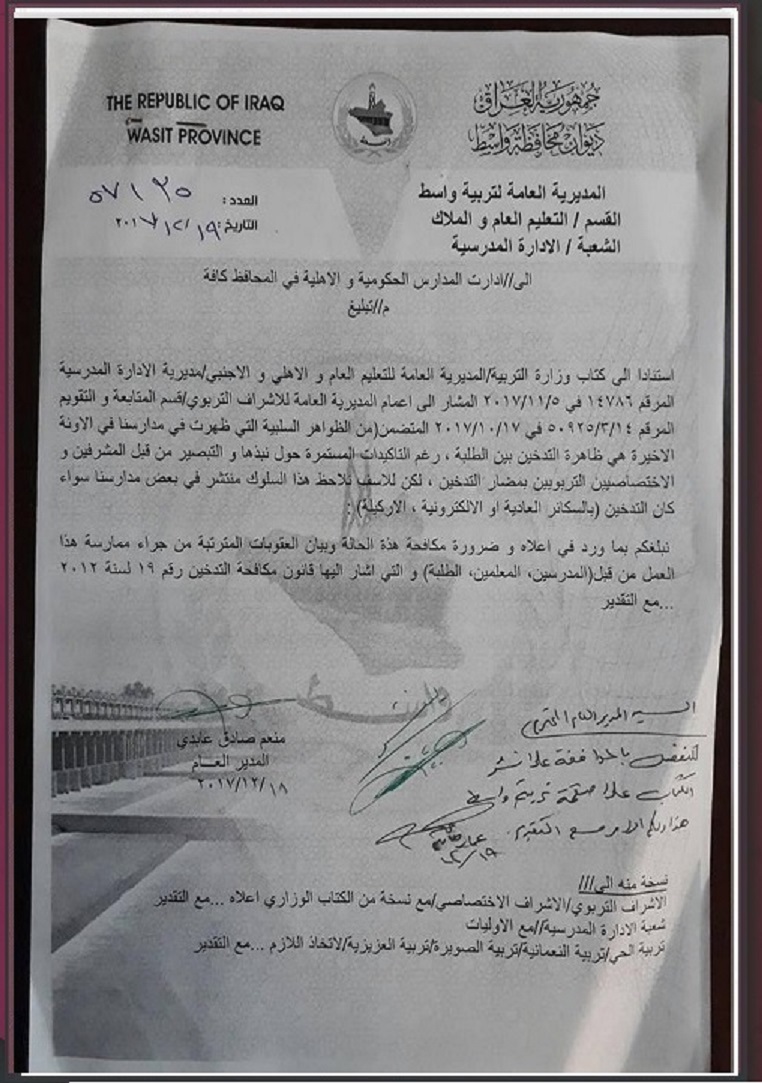 THE REPUBLIC OF IRAQ
WASIT PROVINCE
جمهورية العراق
ديوان محافظة واسط
المديرية العامة لتربية واسط
القسم / التعليم العام و الملاك
الشعبة / الادارة المدرسية
العدد : ٥٧١٣٥
التاريخ : ٢٠١٧/١٢/١٩
الى//ادارت المدارس الحكومية و الاهلية في المحافظ كافة
م//تبليغ
استنادا الى كتاب وزارة التربية/المديرية العامة للتعليم العام و الاهلي و الاجنبي/مديرية الادارة المدرسية
المرقم ١٤٧٨٦ في ٢٠١٧/١١/٥ المشار الى اعمام المديرية العامة للاشراف التربوي/قسم المتابعة و التقويم
المرقم ٥٠٩٢٥/٣/١٤ في ٢٠١٧/١٠/١٧ المتضمن(من الظواهر السلبية التي ظهرت في مدارسنا في الاونة
الاخيرة هي ظاهرة التدخين بين الطلبة ، رغم التاكيدات المستمرة حول نبذها و التبصير من قبل المشرفين و
الاختصاصيين التربويين بمضار التدخين ، لكن للاسف نلاحظ هذا السلوك منتشر في بعض مدارسنا سواء
كان التدخين (بالسكائر العادية او الالكترونية ، الاركيلة) :
نبلغكم بما ورد في اعلاه و ضرورة مكافحة هذة الحالة وبيان العقوبات المترتبة من جراء ممارسة هذا
العمل من قبل(المدرسين، المعلمين، الطلبة) و التي اشار اليها قانون مكافحة التدخين رقم ١٩ لسنة ٢٠١٢
...مع التقدير
واسط
منعم صادق عابدي
المدير العام
٢٠١٧/١٢/١٨
السيد المدير العام المحترم
للتفضل بالموافقة على نشر
الكتاب على صفحة تربية واسط
هذا ولكم الامر مع التقدير.
١٢/١٩
نسخة منه الى///
الاشراف التربوي/الاشراف الاختصاصي/مع نسخة من الكتاب الوزاري اعلاه ...مع التقدير
شعبة الادارة المدرسية//مع الاوليات
تربية الحي/تربية النعمانية/تربية الصويرة/تربية العزيزية/لاتخاذ اللازم ...مع التقدير